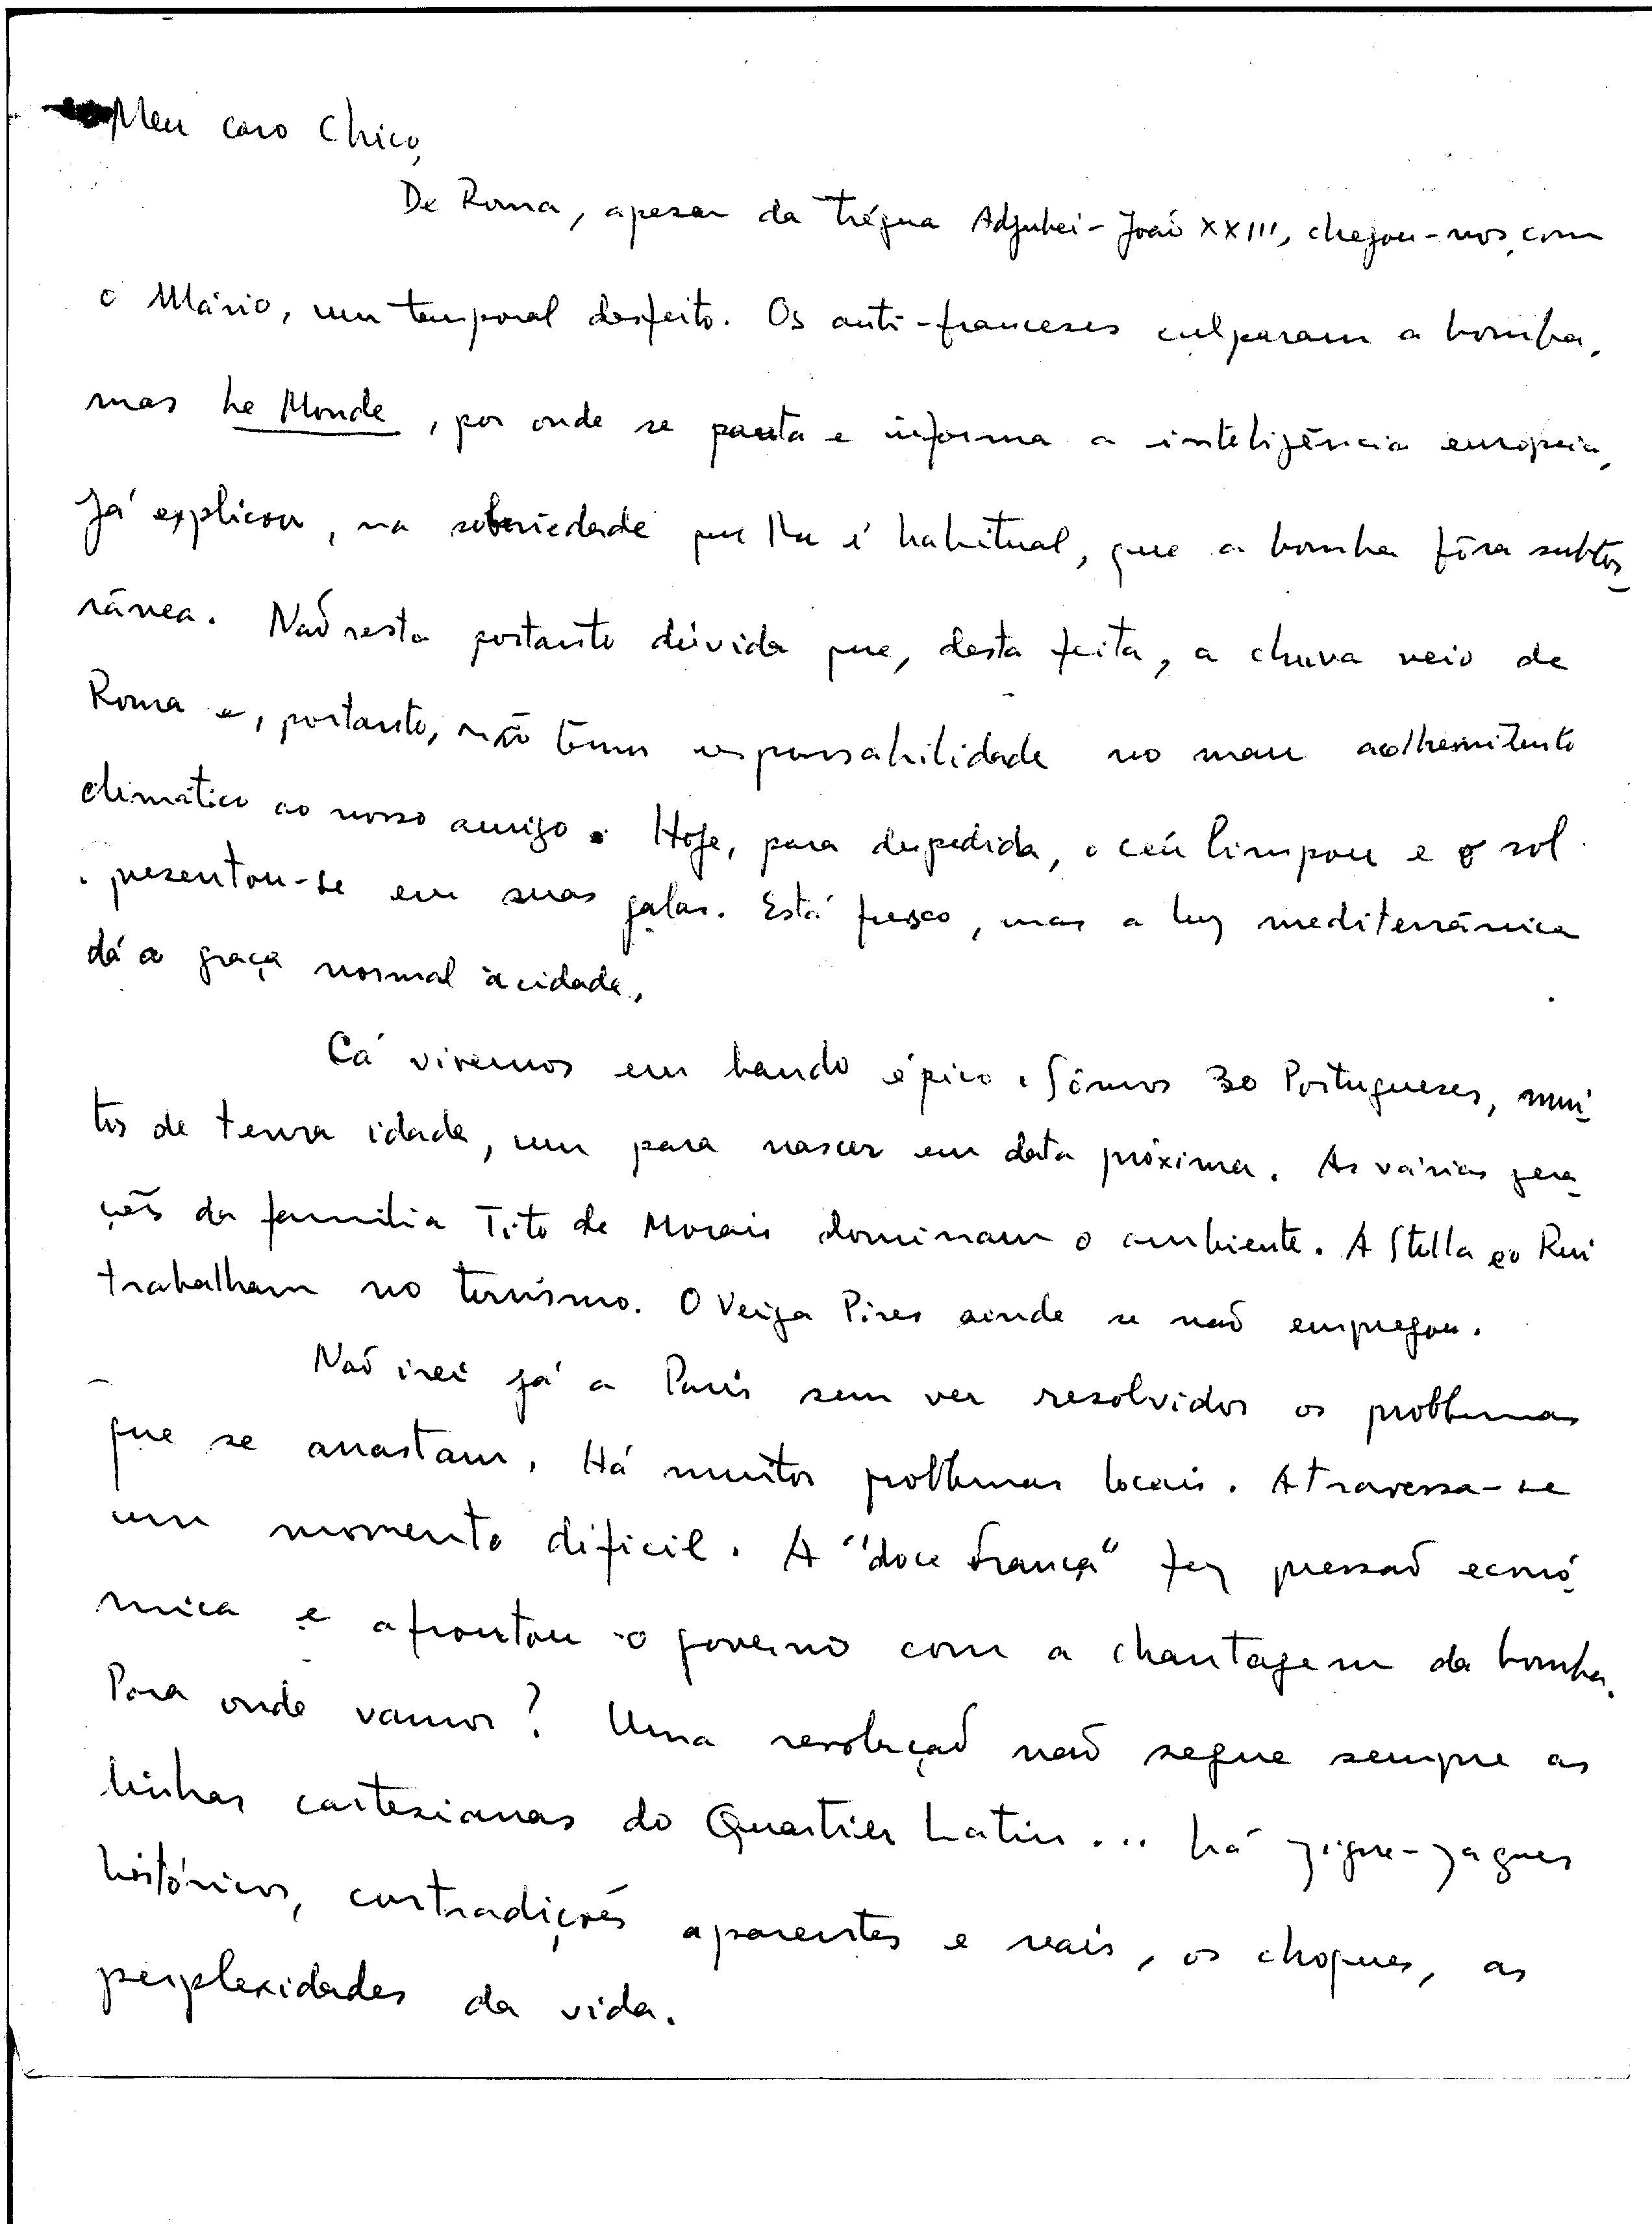 Meu caro Chico,
De Roma, apesar da trégua Adjubei-João XXIII, chegou-nos, com
o Mário, um temporal desfeito. Os anti-franceses culparam a bomba,
mas Le Monde, por onde se pauta e informa a inteligência europeia,
já explicou, na sobriedade que lhe é habitual, que a bomba fôra subter-
rânea. Não resta portanto dúvida que, desta feita, a chuva veio de
Roma e, portanto, não temos responsabilidade no mau acolhimento
climático ao nosso amigo. Hoje, para despedida, o céu limpou e o sol
apresentou-se em suas galas. Está fresco, mas a luz mediterrânica
dá a graça normal à cidade.
Cá vivemos em bando épico. Sômos 30 Portugueses, mui-
tos de tenra idade, um para nascer em data próxima. As várias gera-
ções da família Tito de Morais dominam o ambiente. A Stella e o Rui
trabalham no turismo. O Veiga Pires ainda se não empregou.
Não irei já a Paris sem ver resolvidos os problemas
que se arrastam. Há muitos problemas locais. Atravessa-se
um momento dificil. A "doce França" fez pressão econó-
mica e afrontou o governo com a chantagem da bomba.
Para onde vamos? Uma revolução não segue sempre as
linhas cartesianas do Quartier Latin... há zigue-zagues
históricos, contradições aparentes e reais, os choques, as
perplexidades da vida.